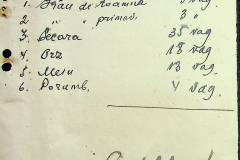 1. Grau de toamnă 5 vag.
2. " " primăv. 3 "
3. Secara 35 vag
4. Orz 18 vag
5. Meiu 13 vag.
6. Porumb. 4 vag.